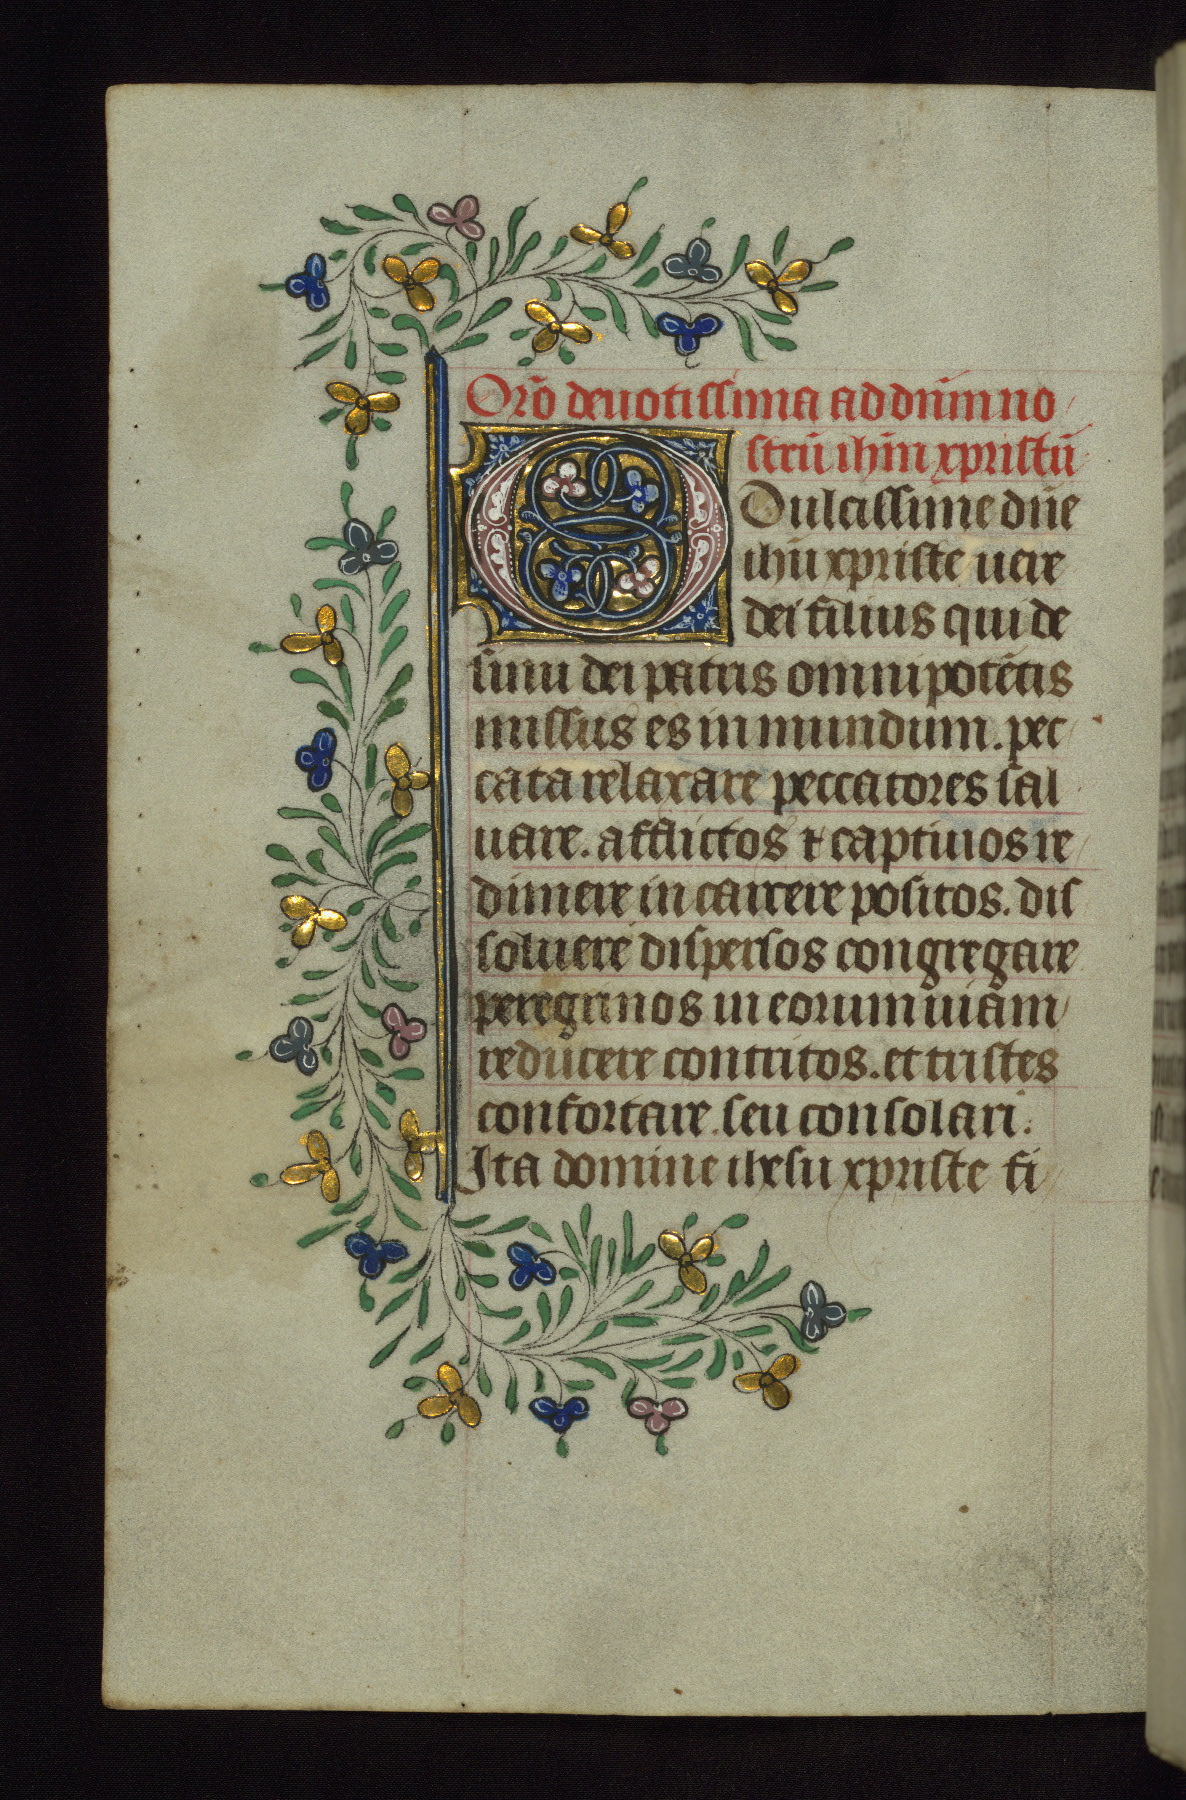 Orō deuotissima ad dn̄m no
strū ihm̄ xpristū
O Dulcissime dn̄e
ihū xpriste uere
dei filius qui de
sinu dei patris omnipotētis
missus es in mundum. pec
cata relaxare peccatores sal
uare. afflictos ⁊ captiuos re
dimere in carcere positos. dis
soluere dispersos congregare
peregrinos in eorum uiam
reducere contritos. et tristes
confortare. seu consolari.
Ita domine ihesu xpriste fi